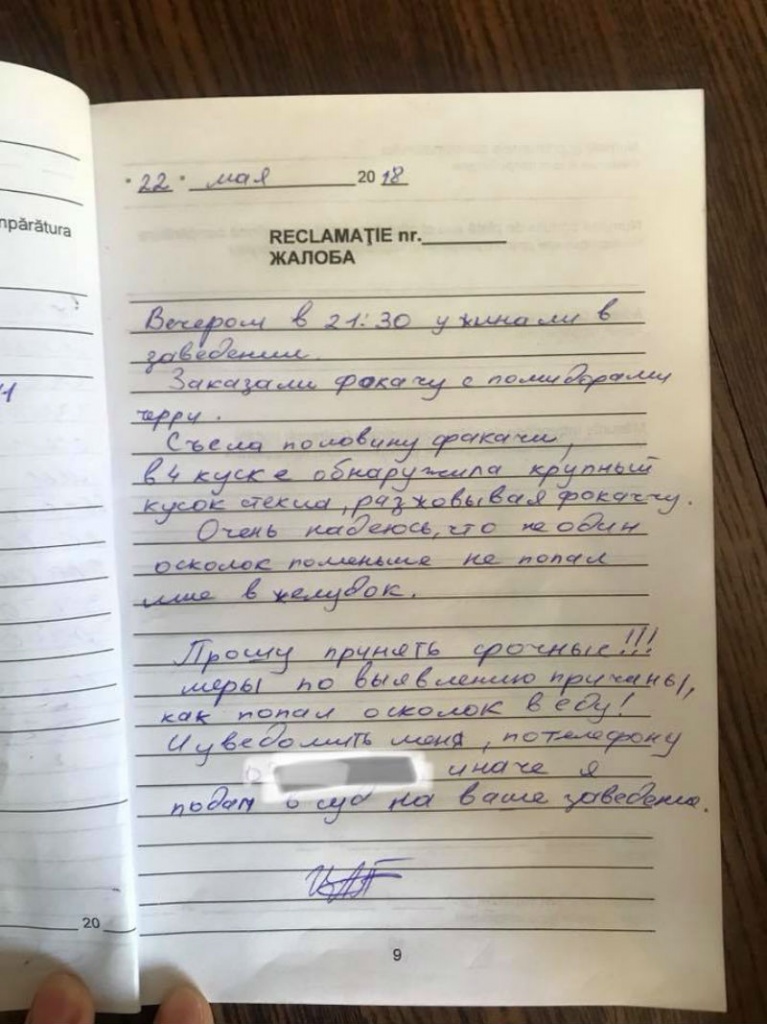 mpărătura
1
20
"22" мая 2018
RECLAMAŢIE nr.
ЖАЛОБА
Вечером в 21:30 ужинали в
заведении.
Заказали факачу с помидорами
черри.
Съела половину факачи,
в 4 куске обнаружила крупный
кусок стекла, разжовывая фокаччу.
Очень надеюсь, что не один
осколок поменьше не попал
мне в желубок.
Прошу принять срочные!!!
меры по выявлению причины,
как попал осколок в еду!
И уведомить меня, по телефону
иначе я
подам в суд на ваше заведение.
9